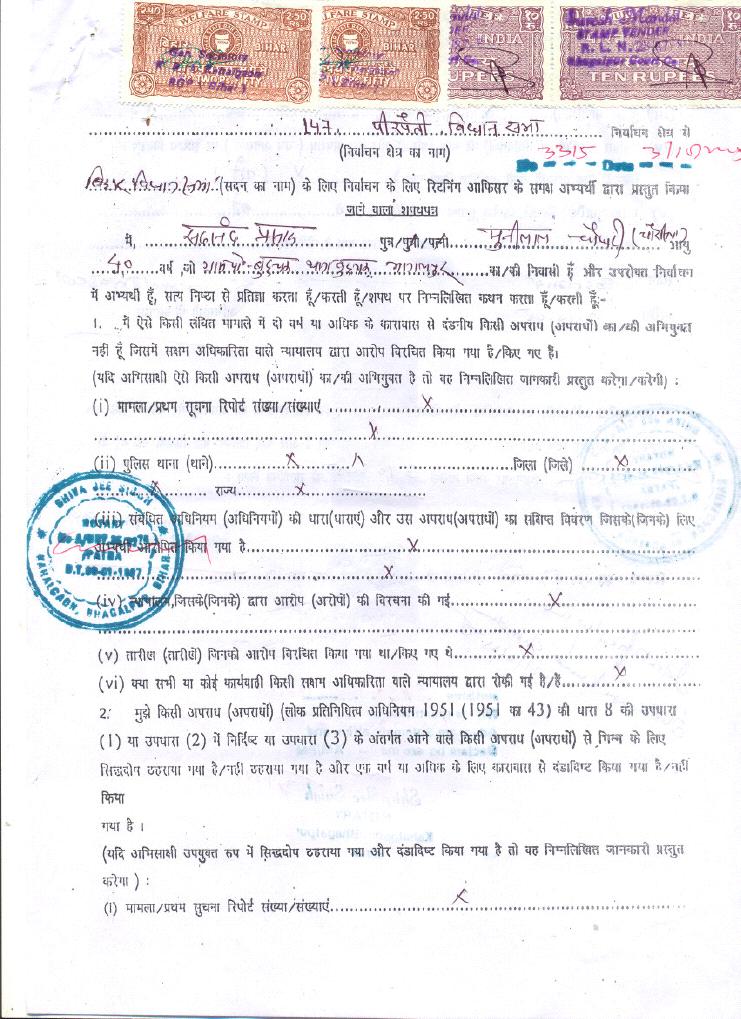 WELFARE STAMP
2.50
BIHAR
WELFARE STAMP
2.50
BIHAR
INDIA
RUPEES
Suresh Mandal
STAMP VENDER
R. L. N. 2
Bhagalpur Court
INDIA
TEN RUPEES
147. पीरपैंती विधान सभा निर्वाचन क्षेत्र से
(निर्वाचन क्षेत्र का नाम)
No 3315 Date
विधान सभा (सदन का नाम) के लिए निर्वाचन के लिए रिटर्निंग आफिसर के समक्ष अभ्यर्थी द्वारा प्रस्तुत किया
जाने वाला शपथपत्र
मैं, सदानंद पुत्र/पुत्री/पत्नी मुनीलाल चौधरी आयु
40 वर्ष, जो का/की निवासी हूँ और उपरोक्त निर्वाचन
में अभ्यर्थी हूँ, सत्य निष्ठा से प्रतिज्ञा करता हूँ/करती हूँ/शपथ पर निम्नलिखित कथन करता हूँ/करती हूँ:-
1. मैं ऐसे किसी लंबित मामले में दो वर्ष या अधिक के कारावास से दंडनीय किसी अपराध (अपराधों) का/की अभियुक्त
नहीं हूँ जिसमें सक्षम अधिकारिता वाले न्यायालय द्वारा आरोप विरचित किया गया है/किए गए हैं।
(यदि अभिसाक्षी ऐसे किसी अपराध (अपराधों) का/की अभियुक्त है तो वह निम्नलिखित जानकारी प्रस्तुत करेगा/करेगी) :
(i) मामला/प्रथम सूचना रिपोर्ट संख्या/संख्याएं X
X
(ii) पुलिस थाना (थाने) X जिला (जिले) X
राज्य X
(iii) संबंधित अधिनियम (अधिनियमों) की धारा(धाराएं) और उस अपराध(अपराधों) का संक्षिप्त विवरण जिसके(जिनके) लिए
अभ्यर्थी आरोपित किया गया है X
X
(iv) न्यायालय,जिसके(जिनके) द्वारा आरोप (अरोपों) की विरचना की गई X
(v) तारीख (तारीखें) जिनको आरोप विरचित किया गया था/किए गए थे X
(vi) क्या सभी या कोई कार्यवाही किसी सक्षम अधिकारिता वाले न्यायालय द्वारा रोकी गई है/हैं X
2. मुझे किसी अपराध (अपराधों) (लोक प्रतिनिधित्व अधिनियम 1951 (1951 का 43) की धारा 8 की उपधारा
(1) या उपधारा (2) में निर्दिष्ट या उपधारा (3) के अंतर्गत आने वाले किसी अपराध (अपराधों) से भिन्न के लिए
सिद्धदोष ठहराया गया है/नहीं ठहराया गया है और एक वर्ष या अधिक के लिए कारावास से दंडादिष्ट किया गया है/नहीं
किया
गया है ।
(यदि अभिसाक्षी उपयुक्त रुप में सिद्धदोष ठहराया गया और दंडादिष्ट किया गया है तो वह निम्नलिखित जानकारी प्रस्तुत
करेगा ) :
(i) मामला/प्रथम सुचना रिपोर्ट संख्या/संख्याएं X
SHIVA JEE SINGH
NOTARY
PATNA
KAHALGAON, BHAGALPUR, BIHAR